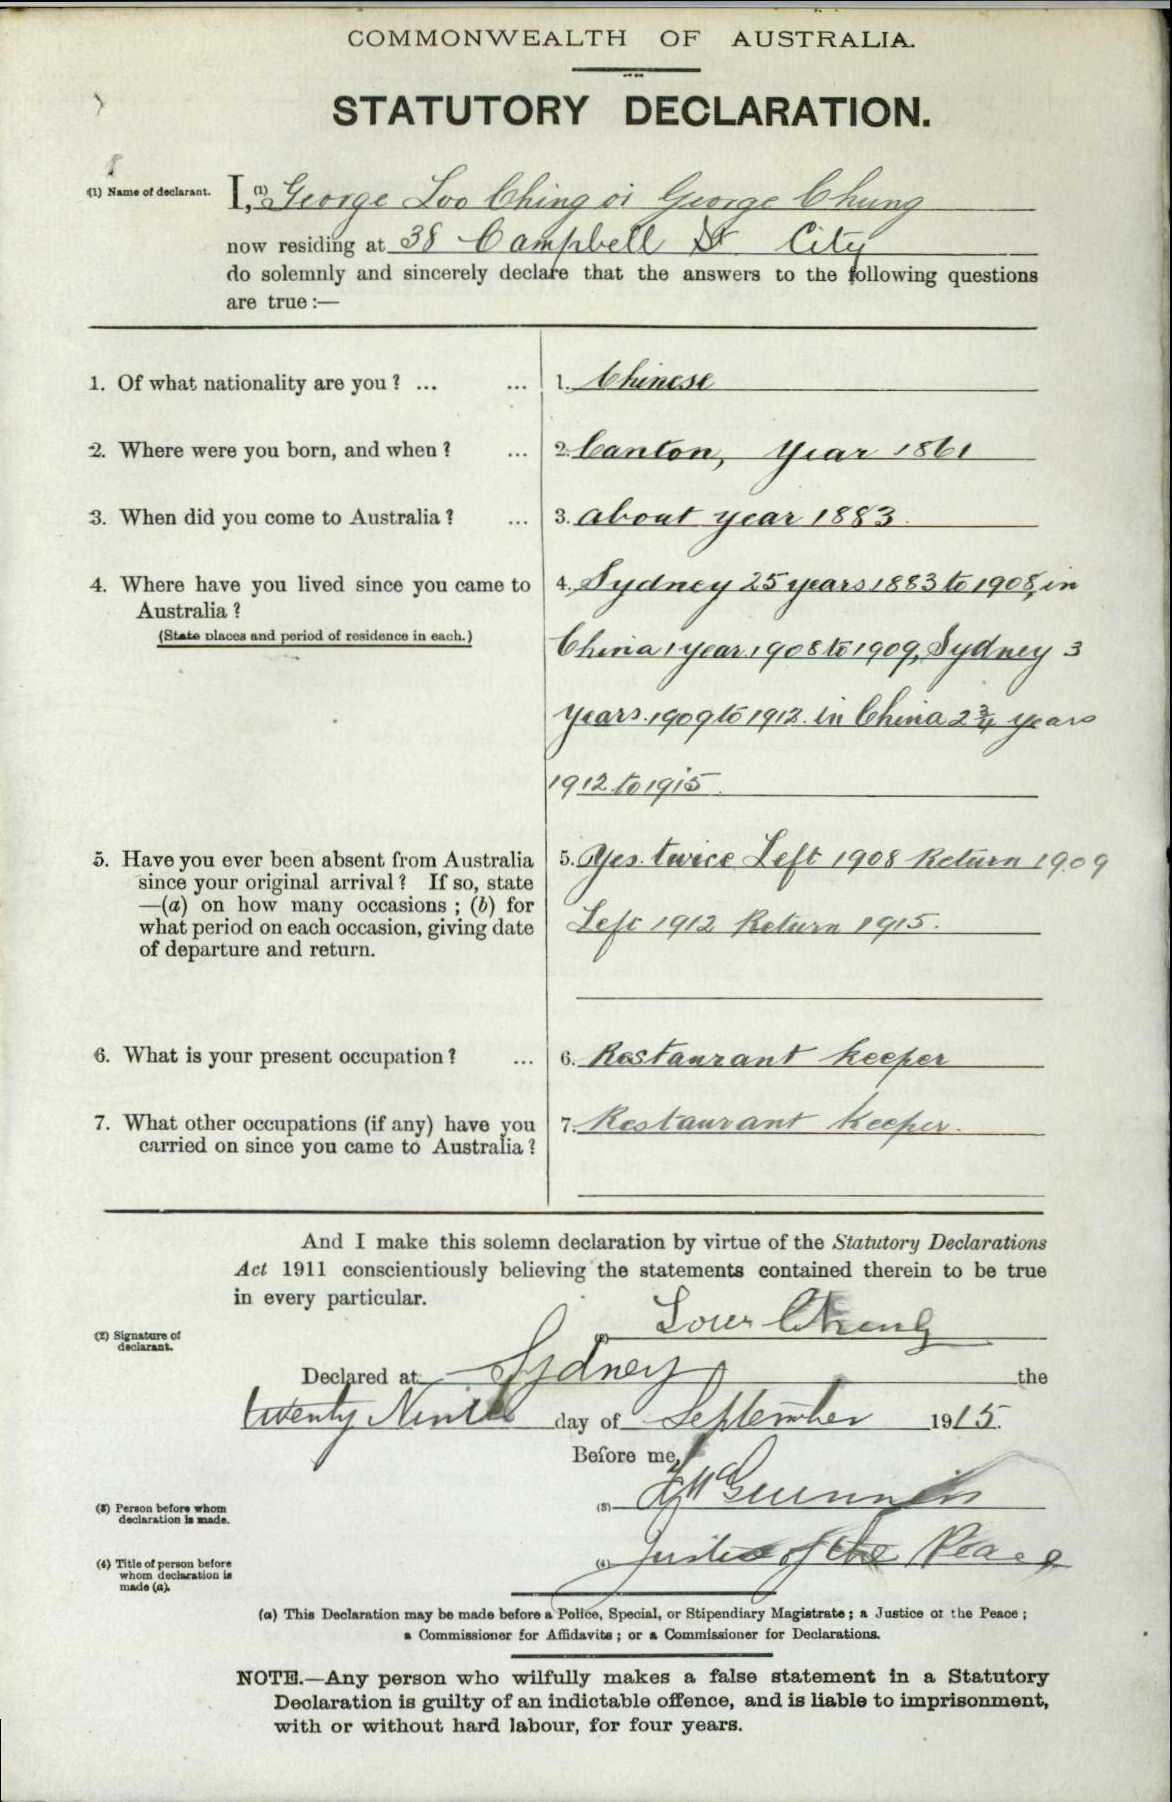 COMMONWEALTH OF AUSTRALIA.
STATUTORY DECLARATION.
(1) Name of declarant. I, (1) George Loo Ching or George Chung
now residing at 38 Campbell St City
do solemnly and sincerely declare that the answers to the following questions
are true :—
1. Of what nationality are you ? ... ... 1. Chinese
2. Where were you born, and when ? ... 2. Canton, year 1861
3. When did you come to Australia ? ... 3. about year 1883.
4. Where have you lived since you came to 4. Sydney 25 years 1883 to 1908, in
Australia ?
(State places and period of residence in each.)
China 1 year 1908 to 1909, Sydney 3
years. 1909 to 1912. in China 2 3/4 years
1912 to 1915.
5. Have you ever been absent from Australia 5. Yes. twice Left 1908 Return 1909
since your original arrival ? If so, state
—(a) on how many occasions ; (b) for
what period on each occasion, giving date Left 1912 Return 1915.
of departure and return.
6. What is your present occupation ? ... 6. Restaurant keeper
7. What other occupations (if any) have you 7. Restaurant Keeper.
carried on since you came to Australia ?
And I make this solemn declaration by virtue of the Statutory Declarations
Act 1911 conscientiously believing the statements contained therein to be true
in every particular.
(2) Signature of
declarant.
(2)
Declared at Sydney the
twenty Ninth day of September 1915.
Before me,
(3) Person before whom
declaration is made.
(3)
(4) Title of person before
whom declaration is
made (a).
(4) Justice of the Peace
(a) This Declaration may be made before a Police, Special, or Stipendiary Magistrate ; a Justice of the Peace ;
a Commissioner for Affidavits ; or a Commissioner for Declarations.
NOTE.—Any person who wilfully makes a false statement in a Statutory
Declaration is guilty of an indictable offence, and is liable to imprisonment,
with or without hard labour, for four years.